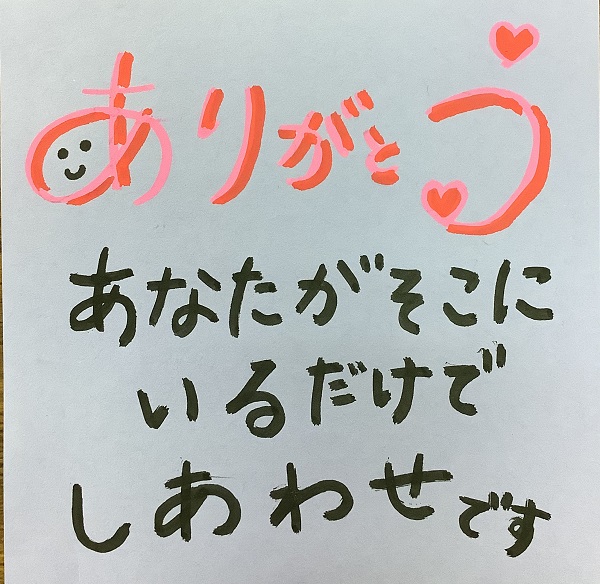 ありがとう
あなたがそこに
いるだけで
しあわせです